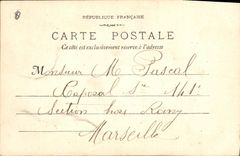 RÉPUBLIQUE FRANÇAISE
CARTE POSTALE
Ce côté est exclusivement réservé à l'adresse
Monsieur M Pascal
Caporal
Section hors Rang
Marseille